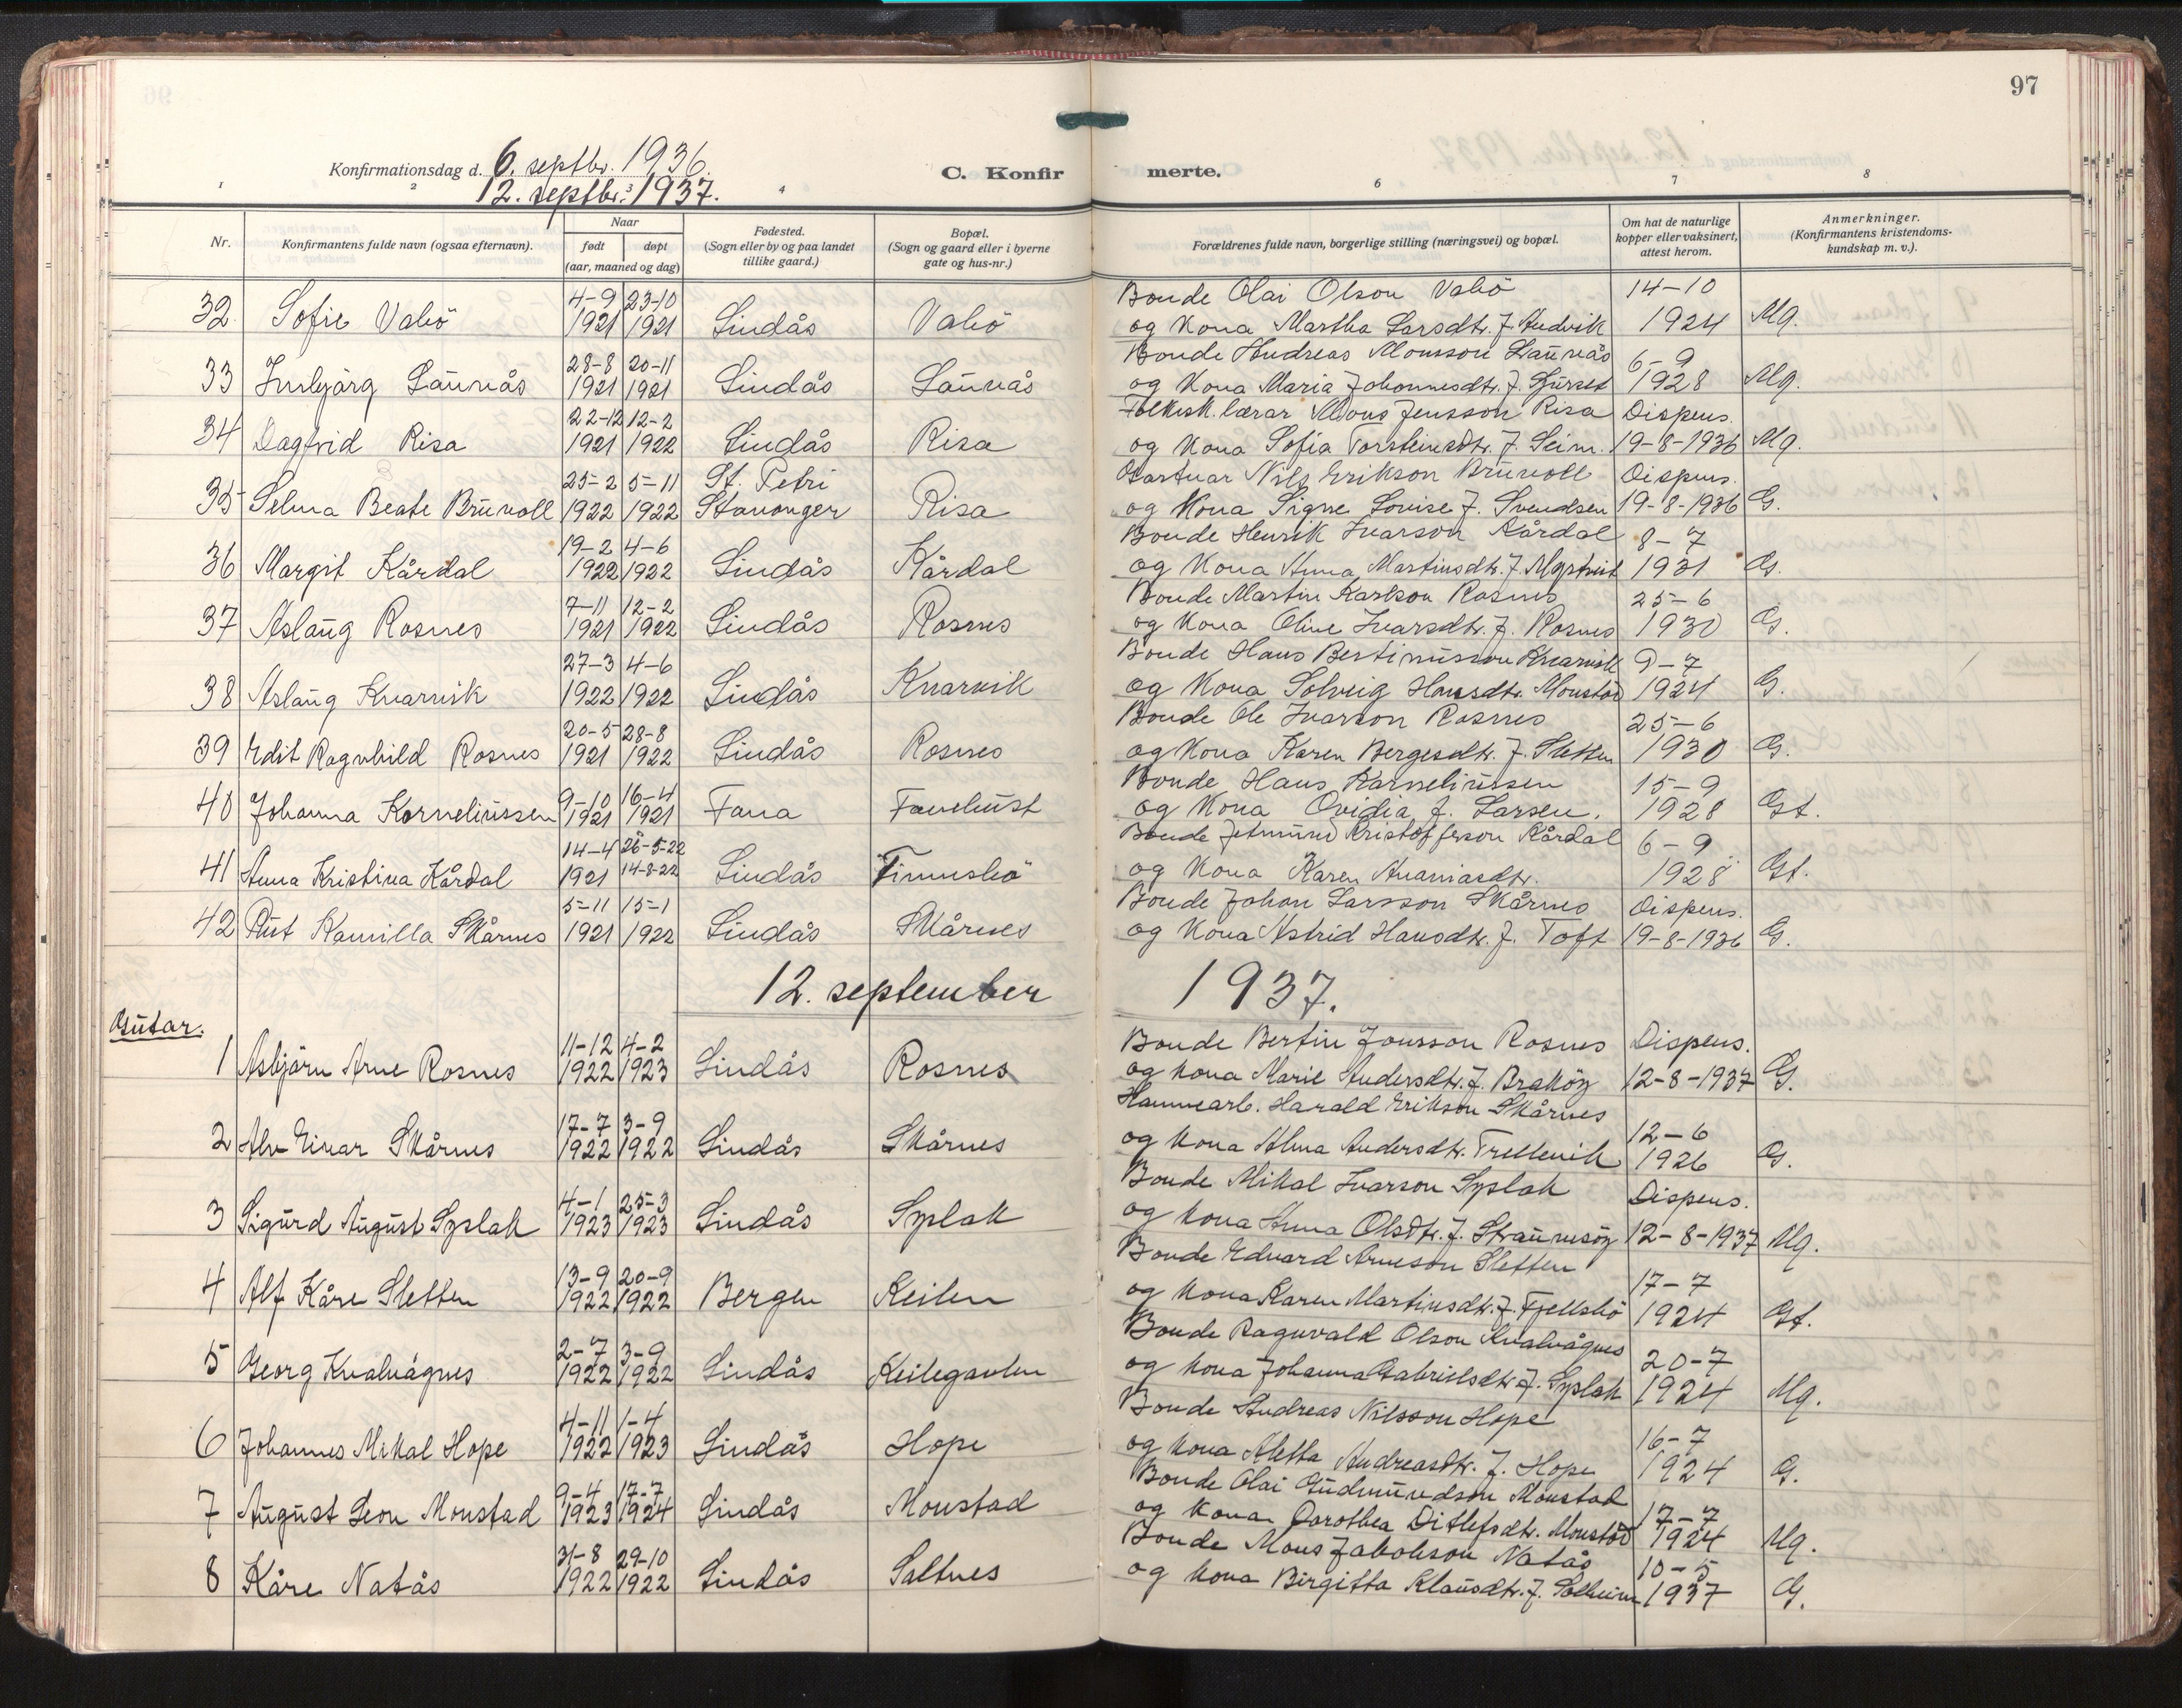 97
Konfirmationsdag d. 6. septbr. 1936.
12. septbr. 1937.
C. Konfirmerte.
1 2 3 4 6 7 8
Nr.
Konfirmantens fulde navn (ogsaa efternavn).
Naar
født
døpt
(aar, maaned og dag)
Fødested.
(Sogn eller by og paa landet
tillike gaard.)
Bopæl.
(Sogn og gaard eller i byerne
gate og hus-nr.)
Forældrenes fulde navn, borgerlige stilling (næringsvei) og bopæl.
Om hat de naturlige
kopper eller vaksinert,
attest herom.
Anmerkninger.
(Konfirmantens kristendoms-
kundskap m. v.).
4-9 23-10 Bonde Olai Olson Vabö 14-10
32. Sofie Vabö 1921 1921 Lindås Vabö og kona Martha Larsdtr. f. Andvik 1924 Mg.
28-8 20-11 Bonde Andreas Monsson Launås 6-9
33 Inbjörg Launås 1921 1921 Lindås Launås og kona Maria Johannesdtr. f. 1928 Mg.
22-12 12-2 Folkesk.lærar Mons Jensson Risa Dispens.
34 Dagfrid Risa 1921 1922 Lindås Risa og kona Sofia Torsteinsdtr. f. Seim. 19-8-1936 Mg.
25-2 5-11 St. Petri Gartnar Nils Erikson Bruvoll Dispens.
35 Selma Beate Bruvoll 1922 1922 Stavanger Risa og kona Signe Lovise f. Svendsen 19-8-1936 G.
19-2 4-6 Bonde Henrik Ivarson Kårdal 8-7
36 Margit Kårdal 1922 1922 Lindås Kårdal og kona Anna Martinsdtr. f. Myntvit 1931 G.
7-11 12-2 Bonde Martin Karlson Rosnes 25-6
37 Aslaug Rosnes 1921 1922 Lindås Rosnes og kona Oline Ivarsdtr. f. Rosnes 1930 G.
27-3 4-6 Bonde Hans Bertinusson Knarvik 9-7
38 Aslaug Knarvik 1922 1922 Lindås Knarvik og kona Solveig Hansdtr. Monstad 1924 G.
20-5 28-8 Bonde Ole Ivarson Rosnes 25-6
39 Edit Ragnhild Rosnes 1921 1922 Lindås Rosnes og kona Karen Bergesdtr. f. Sletten 1930 G.
9-10 16-4 Bonde Hans Karneliussen 15-9
40 Johanna Korneliussen 1921 1921 Fana Fanehust og kona Ovidia f. Larsen. 1928 Gt.
14-4 26-5-22 Bonde Jetmund Kristofferson Kårdal 6-9
41 Anna Kristina Kårdal 1921 14-8-22 Lindås Finnsbö og kona Karen Ananiasdtr. 1928 Gt.
5-11 15-1 Bonde Johan Larsson Skårnes Dispens.
42 Rut Kamilla Skårnes 1921 1922 Lindås Skårnes og kona Astrid Hansdtr. f. Toft 19-8-1936 G.
12. september 1937.
Gutar.
11-12 4-2 Bonde Bertin Jonsson Rosnes Dispens.
1 Asbjörn Arne Rosnes 1922 1923 Lindås Rosnes og kona Marie Andersdtr. f. Braköy 12-8-1937 G.
17-7 3-9 Hamnearb. Harald Erikson Skårnes 12-6
2 Alv Einar Skårnes 1922 1922 Lindås Skårnes og kona Alma Andersdtr. Trellevik 1926 G.
4-1 25-3 Bonde Mikal Ivarson Syslak Dispens.
3 Sigurd August Syslak 1923 1923 Lindås Syslak og kona Anna Olsdtr. f. Straumsöy 12-8-1937 Mg.
13-9 20-9 Bonde Edvard Arneson Sletten 17-7
4 Alf Kåre Sletten 1922 1922 Bergen Keilen og kona Karen Martinsdtr. f. Fjellsbö 1924 Gt.
2-7 3-9 Bonde Ragnvald Olson Kvalvågnes 20-7
5 Georg Kvalvågnes 1922 1922 Lindås Keilegavlen og kona Johanna Gabrielsdtr. f. Syslak 1924 Mg.
4-11 1-4 Bonde Andreas Nilsson Hope 16-7
6 Johannes Mikal Hope 1922 1923 Lindås Hope og kona Aletta Andreasdtr. f. Hope 1924 G.
9-4 17-7 Bonde Olai Gudmundson Monstad 17-7
7 August Leon Monstad 1923 1924 Lindås Monstad og kona Dorothea Ditlefsdtr. Monstad 1924 Mg.
31-8 29-10 Bonde Mons Jakobson Natås 10-5
8 Kåre Natås 1922 1922 Lindås Saltnes og kona Birgitta Klausdtr. f. Solheim 1937 G.